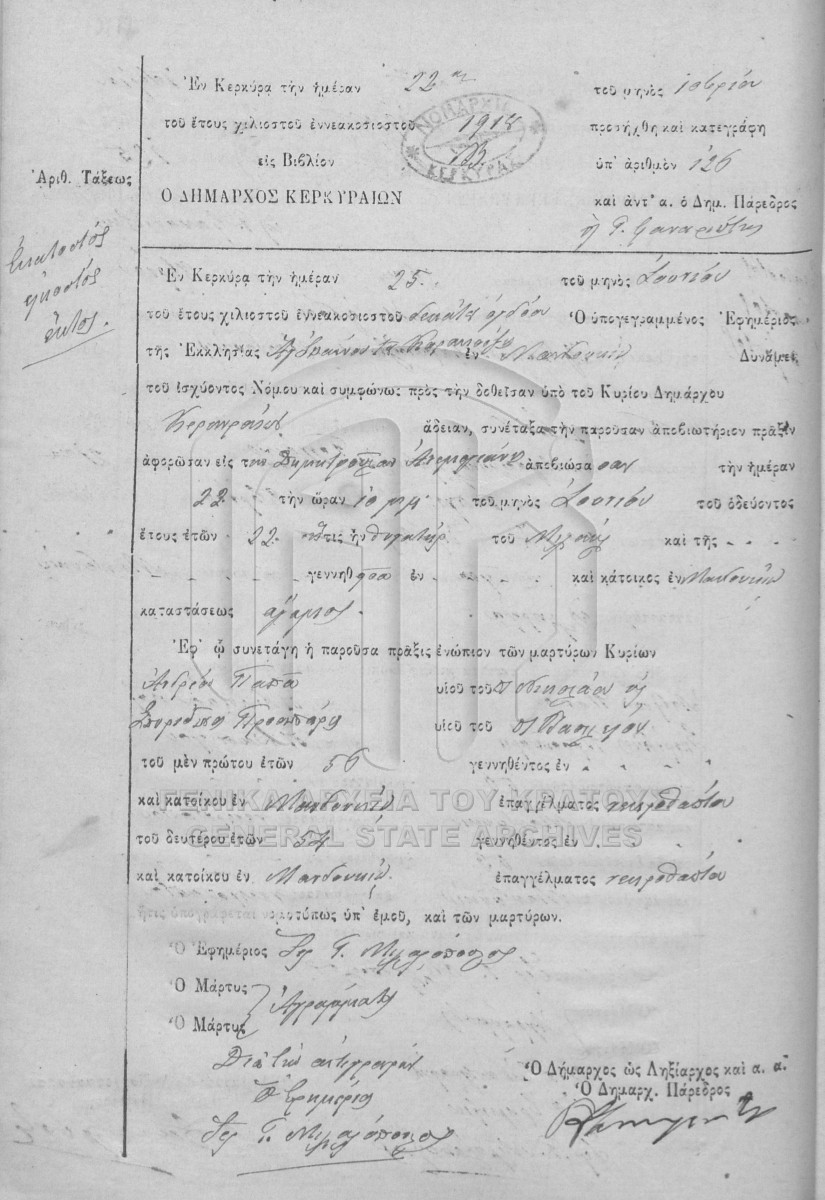 Ἐν Κερκύρᾳ τὴν ἡμέραν 22αν τοῦ μηνὸς
τοῦ ἔτους χιλιοστοῦ ἐννεακοσιοστοῦ 1918 προσήχθη καὶ κατεγράφη
εἰς Βιβλίον ὑπ' ἀριθμὸν 126
ΝΟΜΑΡΧΙΑ ΚΕΡΚΥΡΑΣ
Ἀριθ. Τάξεως
Ο ΔΗΜΑΡΧΟΣ ΚΕΡΚΥΡΑΙΩΝ καὶ ἀντ' α. ὁ Δημ. Πάρεδρος
Ἑκατοστὸς
εἰκοστὸς
ἕκτος.
Ἐν Κερκύρᾳ τὴν ἡμέραν 25. τοῦ μηνὸς Ἰουνίου
τοῦ ἔτους χιλιοστοῦ ἐννεακοσιοστοῦ δεκάτου ὀγδόου Ὁ ὑπογεγραμμένος Ἐφημέριος
τῆς Ἐκκλησίας ἐν Μαντουκίῳ Δυνάμει
τοῦ ἰσχύοντος Νόμου καὶ συμφώνως πρὸς τὴν δοθεῖσαν ὑπὸ τοῦ Κυρίου Δημάρχου
Κερκυραίων ἄδειαν, συνέταξα τὴν παροῦσαν ἀποβιωτήριον πρᾶξιν
ἀφορῶσαν εἰς τὴν ἀποβιώσασαν τὴν ἡμέραν
22 τὴν ὥραν 10 μμ τοῦ μηνὸς Ἰουνίου τοῦ ὁδεύοντος
ἔτους ἐτῶν 22 ἥτις ἦν θυγάτηρ τοῦ Μιχαὴλ καὶ τῆς
γεννηθεῖσα ἐν καὶ κάτοικος ἐν Μαντουκίῳ
καταστάσεως ἄγαμος
Ἐφ' ᾧ συνετάγη ἡ παροῦσα πρᾶξις ἐνώπιον τῶν μαρτύρων Κυρίων
Ἀνδρέου Παππᾶ υἱοῦ τοῦ π Νικολάου καὶ
Σπυρίδωνος υἱοῦ τοῦ π Βασιλείου
τοῦ μὲν πρώτου ἐτῶν 56 γεννηθέντος ἐν
καὶ κατοίκου ἐν Μαντουκίῳ ἐπαγγέλματος νεκροθάπτου
τοῦ δευτέρου ἐτῶν 54 γεννηθέντος ἐν
καὶ κατοίκου ἐν Μαντουκίῳ ἐπαγγέλματος νεκροθάπτου
ἥτις ὑπογράφεται νομοτύπως ὑπ' ἐμοῦ, καὶ τῶν μαρτύρων.
Ὁ Ἐφημέριος
Ὁ Μάρτυς
Ὁ Μάρτυς Ἀγράμματοι
Διὰ τὴν ἀντιγραφὴν
Ὁ Ἐφημέριος
Ὁ Δήμαρχος ὡς Ληξίαρχος καὶ α. α.
Ὁ Δημαρχ. Πάρεδρος
ΓΕΝΙΚΑ ΑΡΧΕΙΑ ΤΟΥ ΚΡΑΤΟΥΣ
GENERAL STATE ARCHIVES